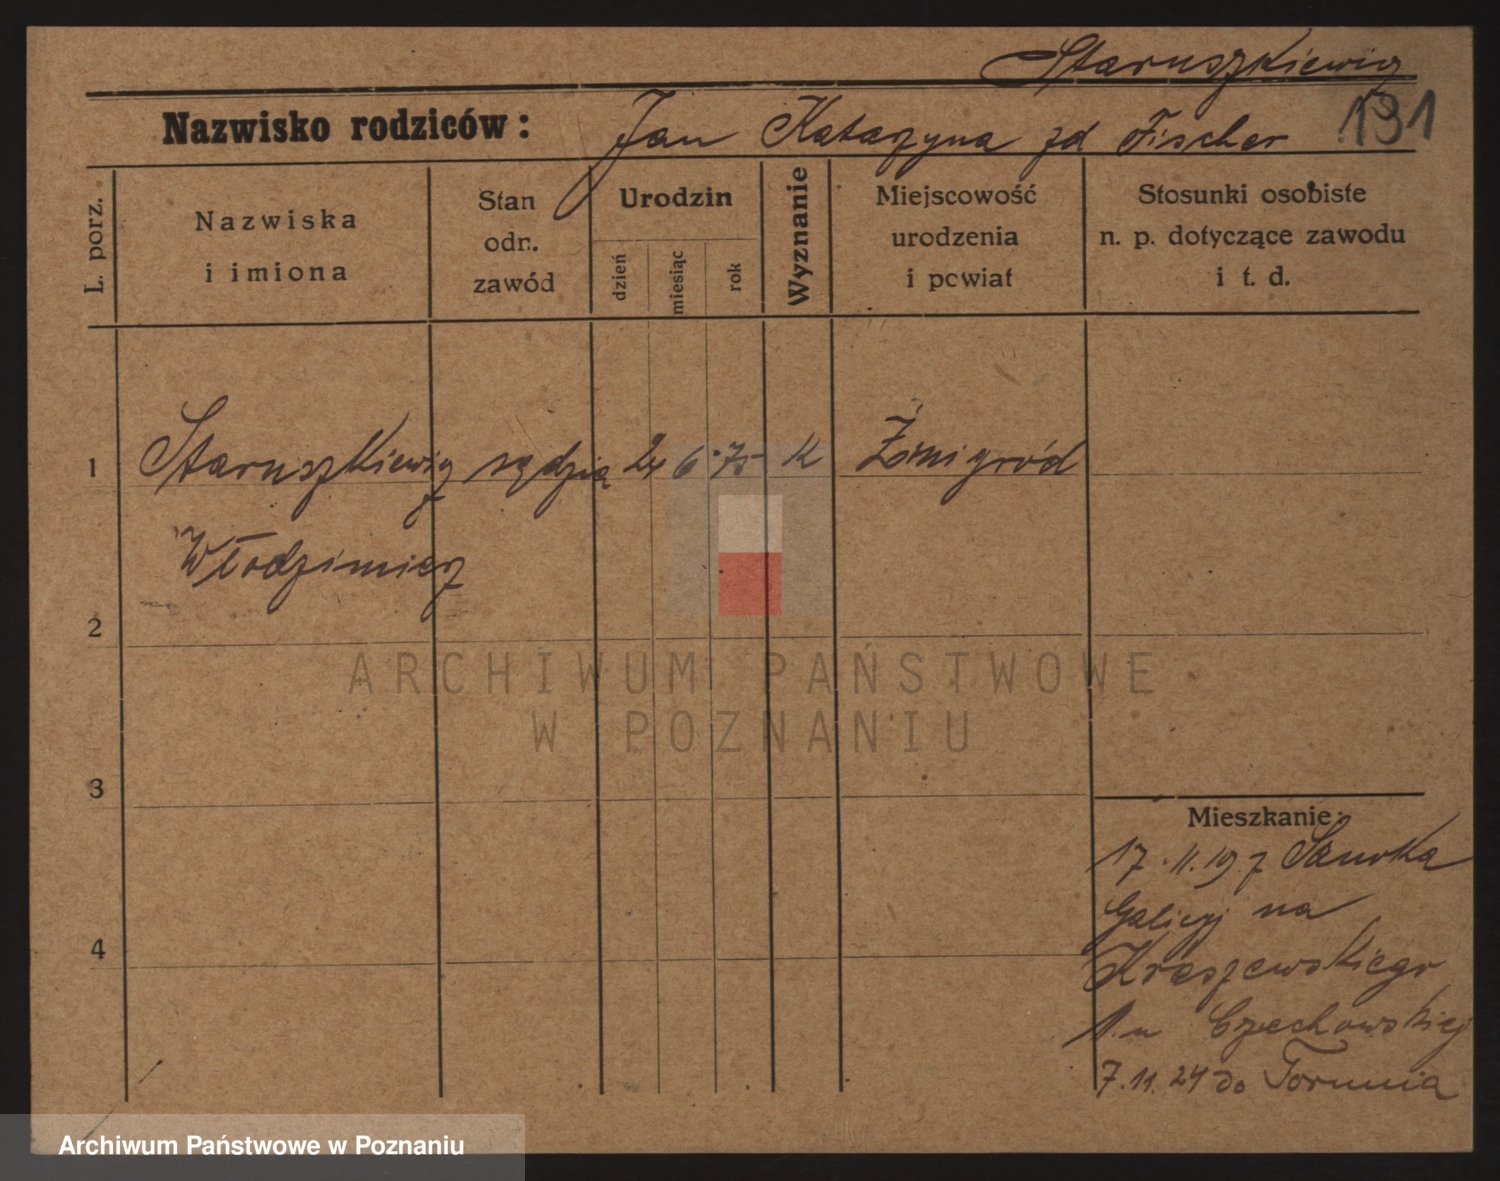 Staruszkiewicz
Nazwisko rodziców: Jan Katarzyna zd Fischer 131
L. porz.
Nazwiska
i imiona
Stan
odn.
zawód
Urodzin
dzień
miesiąc
rok
Wyznanie
Miejscowość
urodzenia
i powiat
Stosunki osobiste
n. p. dotyczące zawodu
i t. d.
1 Staruszkiewicz sędzia 24 6 75 K Żmigród
Włodzimierz
2
3
4
Mieszkanie:
17.11.19 z Sanoka
Galicyj na
Kraszewskiego
1. u Czechowskiej
7.11.24 do Torunia
ARCHIWUM PAŃSTWOWE
W POZNANIU
Archiwum Państwowe w Poznaniu